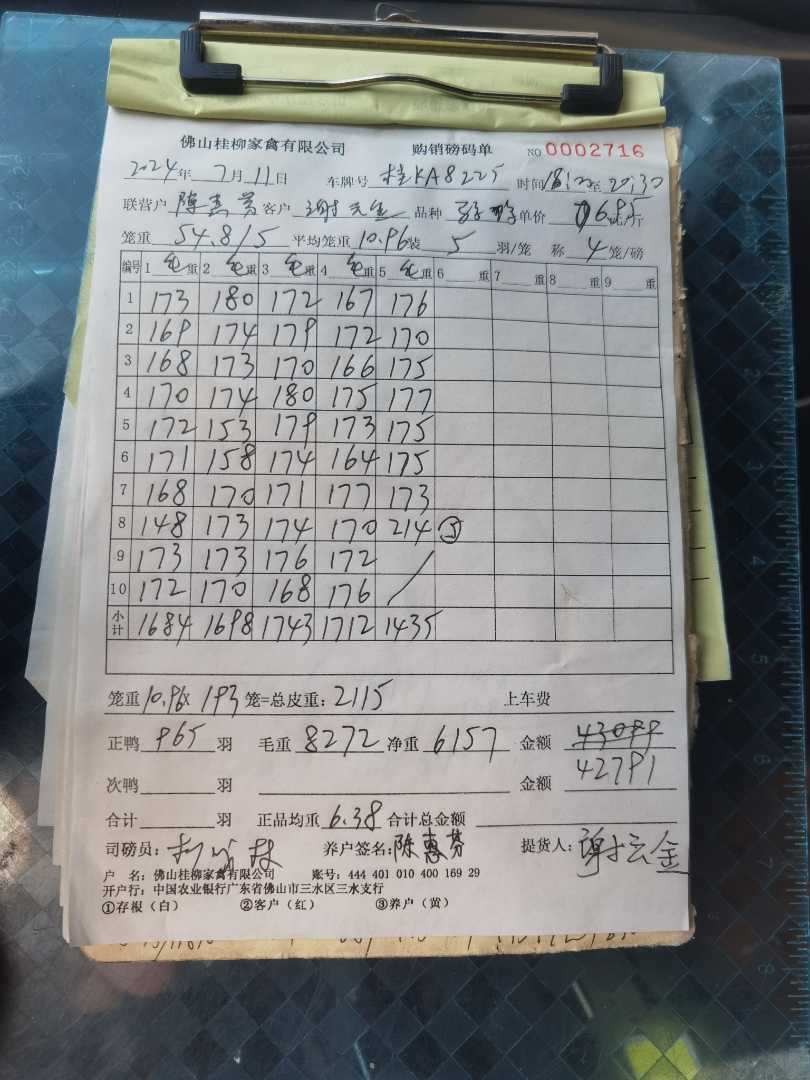 佛山桂柳家禽有限公司 购销磅码单 NO 0002716
2024年 7月 11日 车牌号 桂KA8225 时间 至 20:30
联营户 陈惠芬 客户 谢先生 品种 单价 6.95 元/斤
笼重 54.8/5 平均笼重 10.96 装 5 羽/笼 称 4 笼/磅
编号 1 毛重 2 毛重 3 毛重 4 毛重 5 毛重 6 重 7 重 8 重 9 重
1 173 180 172 167 176
2 169 174 179 172 170
3 168 173 170 166 175
4 170 174 180 175 177
5 172 153 179 173 175
6 171 158 174 164 175
7 168 170 171 177 173
8 148 173 174 170 214 ⑤
9 173 173 176 172
10 172 170 168 176
小计 1684 1698 1743 1712 1435
笼重 10.96× 193 笼=总皮重: 2115 上车费
正鸭 965 羽 毛重 8272 净重 6157 金额 43099
42791
次鸭 羽 金额
合计 羽 正品均重 6.38 合计总金额
司磅员: 养户签名: 陈惠芬 提货人: 谢云金
户 名: 佛山桂柳家禽有限公司 账号: 444 401 010 400 169 29
开户行: 中国农业银行广东省佛山市三水区三水支行
①存根（白） ②客户（红） ③养户（黄）